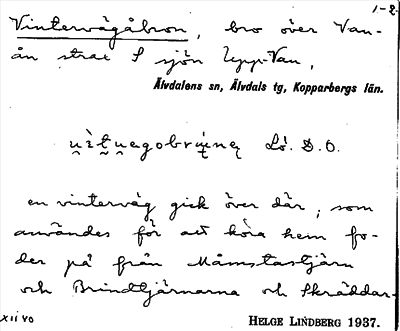 1-2
Vintervägåbron, bro över Van-
ån strax S sjön Upp-Van,
Älvdalens sn, Älvdals tg, Kopparbergs län.
Lö. D.O.
en vinterväg gick över där, som
användes för att köra hem fo-
der på från Måmstastjärn
och Brindtjärnarna och Skräddar-
XII 40
HELGE LINDBERG 1937.